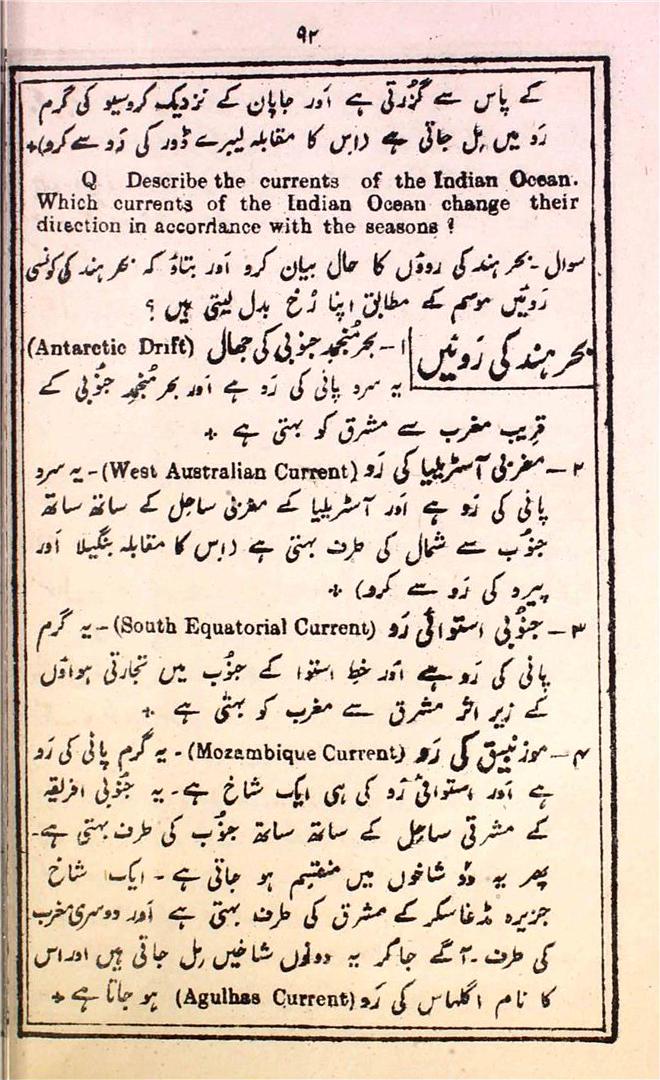 ۹۲
کے پاس سے گزرتی ہے اور جاپان کے نزدیک کروسیو کی گرم
رَو میں مِل جاتی ہے (اِس کا مقابلہ لیبرے ڈور کی رَو سے کرو)+
Q Describe the currents of the Indian Ocean.
Which currents of the Indian Ocean change their
direction in accordance with the seasons ?
سوال - بحر ہند کی روؤں کا حال بیان کرو اَور بتاؤ کہ بحر ہند کی کونسی
رَوئیں موسم کے مطابق اپنا رُخ بدل لیتی ہیں ؟
بحر ہند کی رَوئیں
۱ - بحر مُنجمد جنوبی کی جھال (Antarctic Drift)
یہ سرد پانی کی رَو ہے اَور بحر مُنجمِد جنُوبی کے
قریب مغرب سے مشرق کو بہتی ہے +
۲ - مغربی آسٹریلیا کی رَو (West Australian Current) - یہ سرد
پانی کی رَو ہے اَور آسٹریلیا کے مغربی ساحِل کے ساتھ ساتھ
جنوُب سے شمال کی طرف بہتی ہے (اِس کا مقابلہ بنگیلا اَور
پیرو کی رَو سے کرو) +
۳ - جنُوبی استوائی رَو (South Equatorial Current) - یہ گرم
پانی کی رَو ہے اَور خطِ استوا کے جنوُب میں تجارتی ہواؤں
کے زیر اثر مشرق سے مغرب کو بہتی ہے +
۴ - موزنبیق کی رَو (Mozambique Current) - یہ گرم پانی کی رَو
ہے اَور استوائی رَو کی ہی ایک شاخ ہے - یہ جنُوبی افریقہ
کے مشرقی ساحِل کے ساتھ ساتھ جنوُب کی طرف بہتی ہے -
پھر یہ دو شاخوں میں منقسِم ہو جاتی ہے - ایک شاخ
جزیرہ مڈغاسکر کے مشرق کی طرف بہتی ہے اَور دوسری مغرب
کی طرف - آگے جا کر یہ دونوں شاخیں مِل جاتی ہیں اور اس
کا نام اگلہاس کی رَو (Agulhas Current) ہو جاتا ہے +